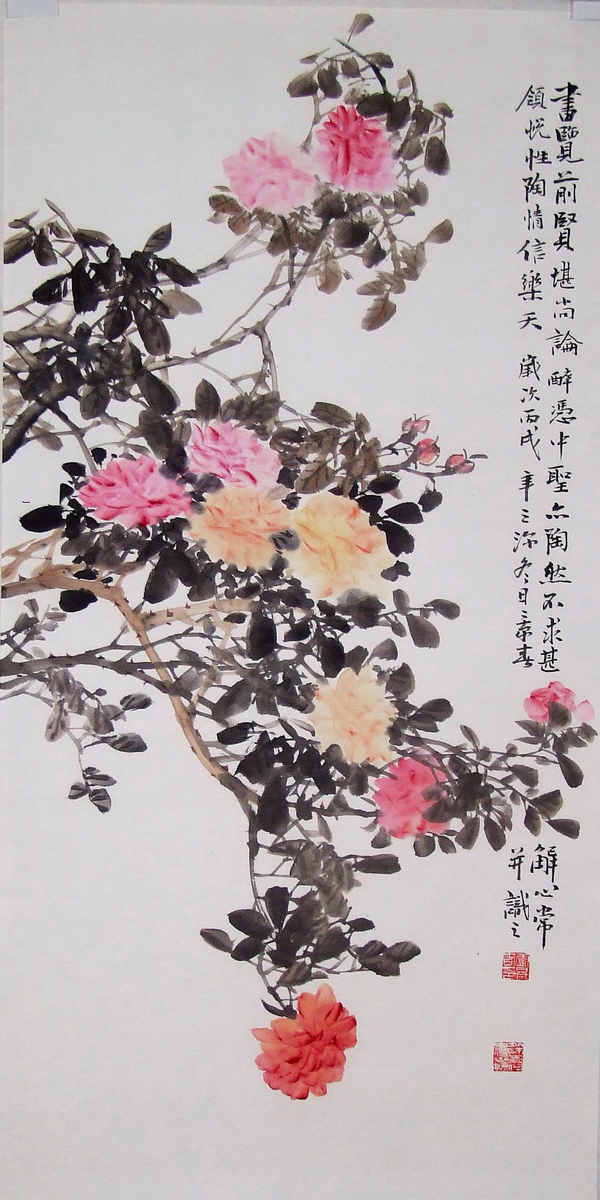 書覽前賢堪尚論醉憑中聖亦陶然不求甚
解心常
領悦性陶情信樂天 歲次丙戌年之深冬日
并識之